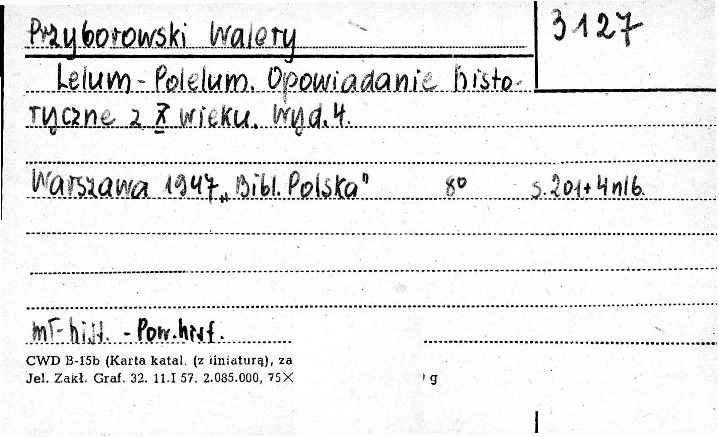 Przyborowski Walery
3127
Lelum-Polelum. Opowiadanie histo-
ryczne z X wieku. Wyd. 4.
Warszawa 1947 „Bibl. Polska" 8° s. 201+4nlb.
mł-hist. - Pow. hist.
CWD B-15b (Karta katal. (z liniaturą), za
Jel. Zakł. Graf. 32. 11.I 57. 2.085.000, 75× g